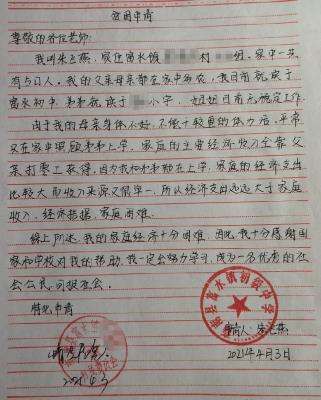 贫困申请
尊敬的各位老师:
我叫朱 燕,家住富水镇 村 组,家中一共
有5口人,我的父亲母亲都在家中务农,我目前就读于
富水初中,弟弟就读于 小学,姐姐目前无稳定工作
由于我的母亲身体不好,不能干较重的体力活,平常
又在家中照顾弟弟上学,家庭的主要经济收入全靠父
亲打零工获得,因为我和弟弟都在上学,家庭的经济支出
比较大而收入来源又很单一,所以经济支出远远大于家庭
收入,经济拮据,家庭困难。
综上所述,我的家庭经济十分困难,因此我十分感谢国
家和学校对我的帮助,我一定会努力学习,成为一名优秀的社
会公民,回报社会。
特此申请
富水镇初级中学
申请人:朱 燕
2021年4月3日
2021.4.3